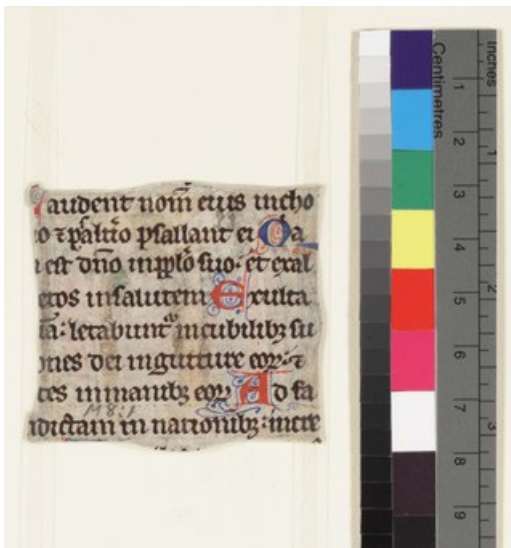 audent nom̄ eius incho
o ⁊ psalt̄io psallant ei Qa
est dn̄o inpp̄lo suo: et exal
etos insalutem Exulta
ia: letabunt᷑ incubilibꝫ su
ones dei ingutture eoꝝ: ⁊
tes inmanibꝫ eoꝝ Ad fa
idictam in nationibꝫ: incre
M8:1
Centimetres
1
2
3
4
5
6
7
8
9
Inches
1
2
3